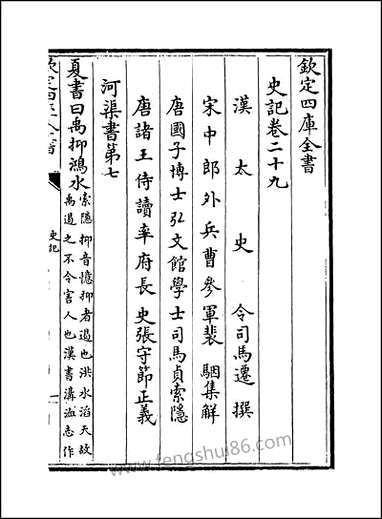 欽定四庫全書
史記卷二十九
漢太史令司馬遷撰
宋中郎外兵曹參軍裴駰集解
唐國子博士弘文館學士司馬貞索隱
唐諸王侍讀率府長史張守節正義
河渠書第七
夏書曰禹抑鴻水索隱抑音憶抑者遏也洪水滔天故
禹遏之不令害人也漢書溝洫志作
欽定四庫全書
史記
一
www.fengshui86.com